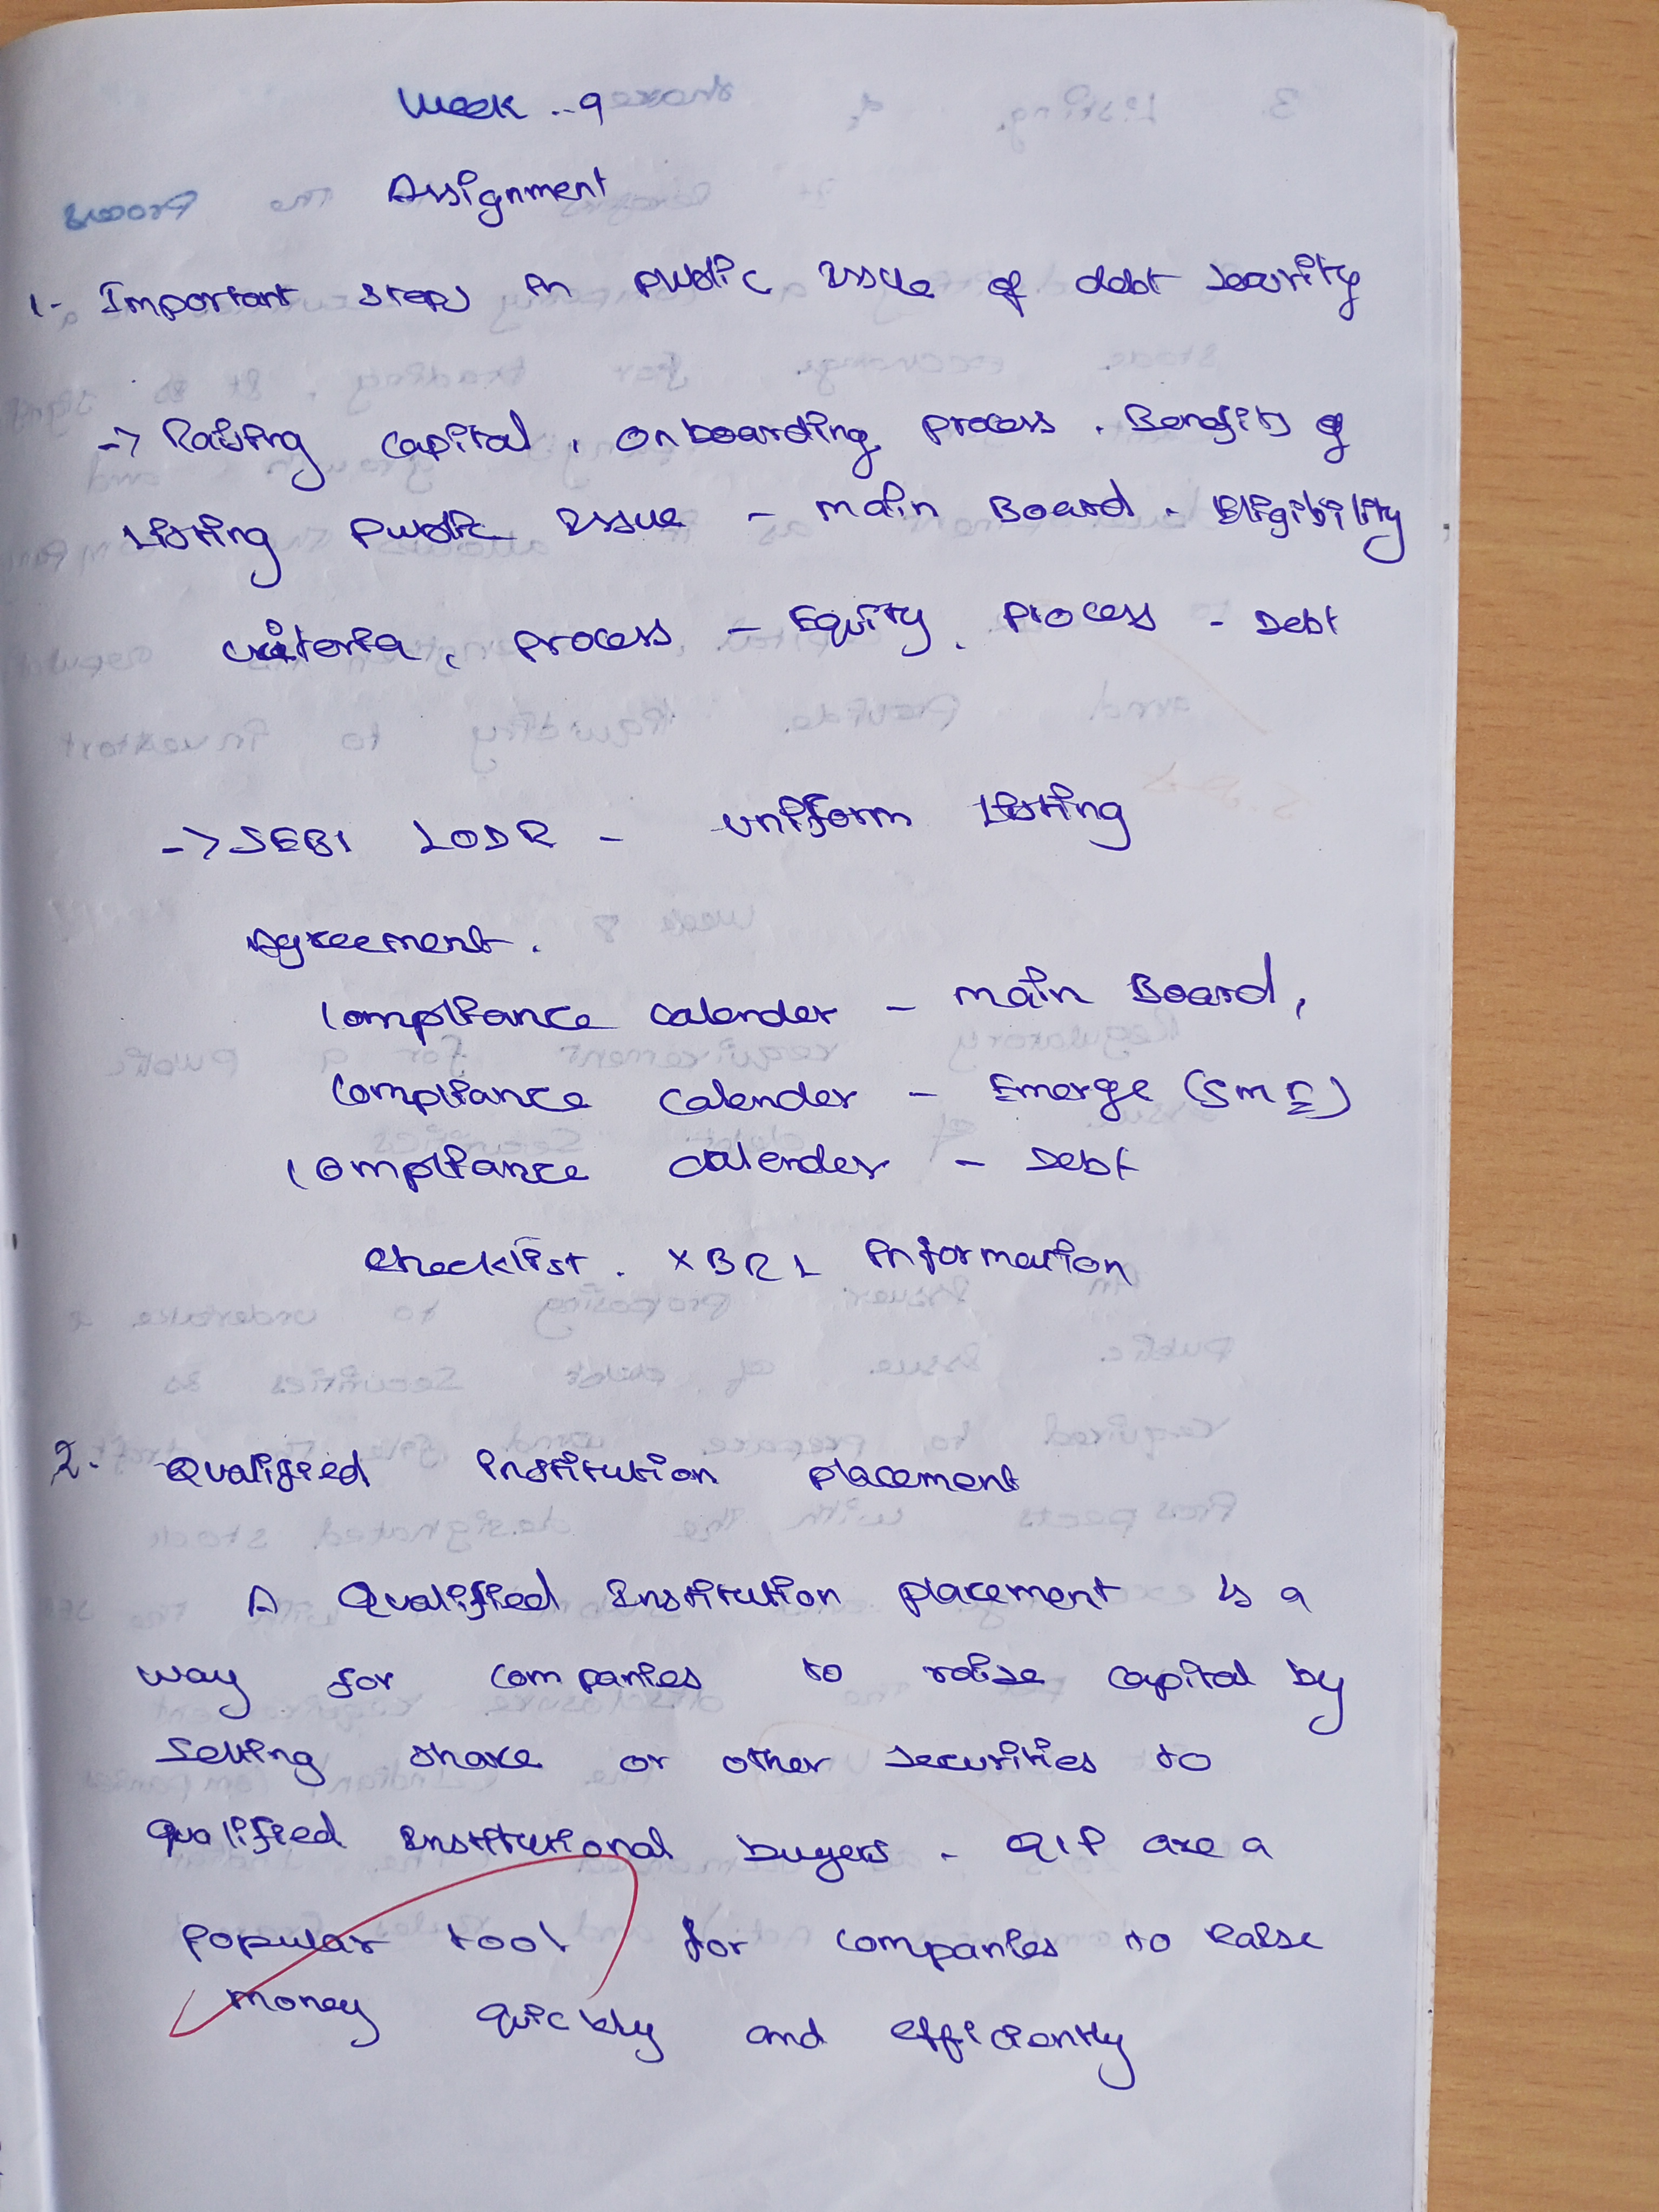 Week -- 9
Assignment
1- Important steps in public issue of debt security
-> Raising capital, onboarding process. Benefits of
Listing public issue - main Board - Eligibility
criteria, process - Equity, process - Debt
-> SEBI LODR - uniform listing
Agreement.
Compliance calender - main Board,
Compliance calender - Emerge (SME)
Compliance calender - Debt
checklist. XBRL information
2. Qualified institution placement
A Qualified institution placement is a
way for companies to raise capital by
selling share or other securities to
qualified institutional buyers. QIP are a
popular tool for companies to raise
money quickly and efficiently